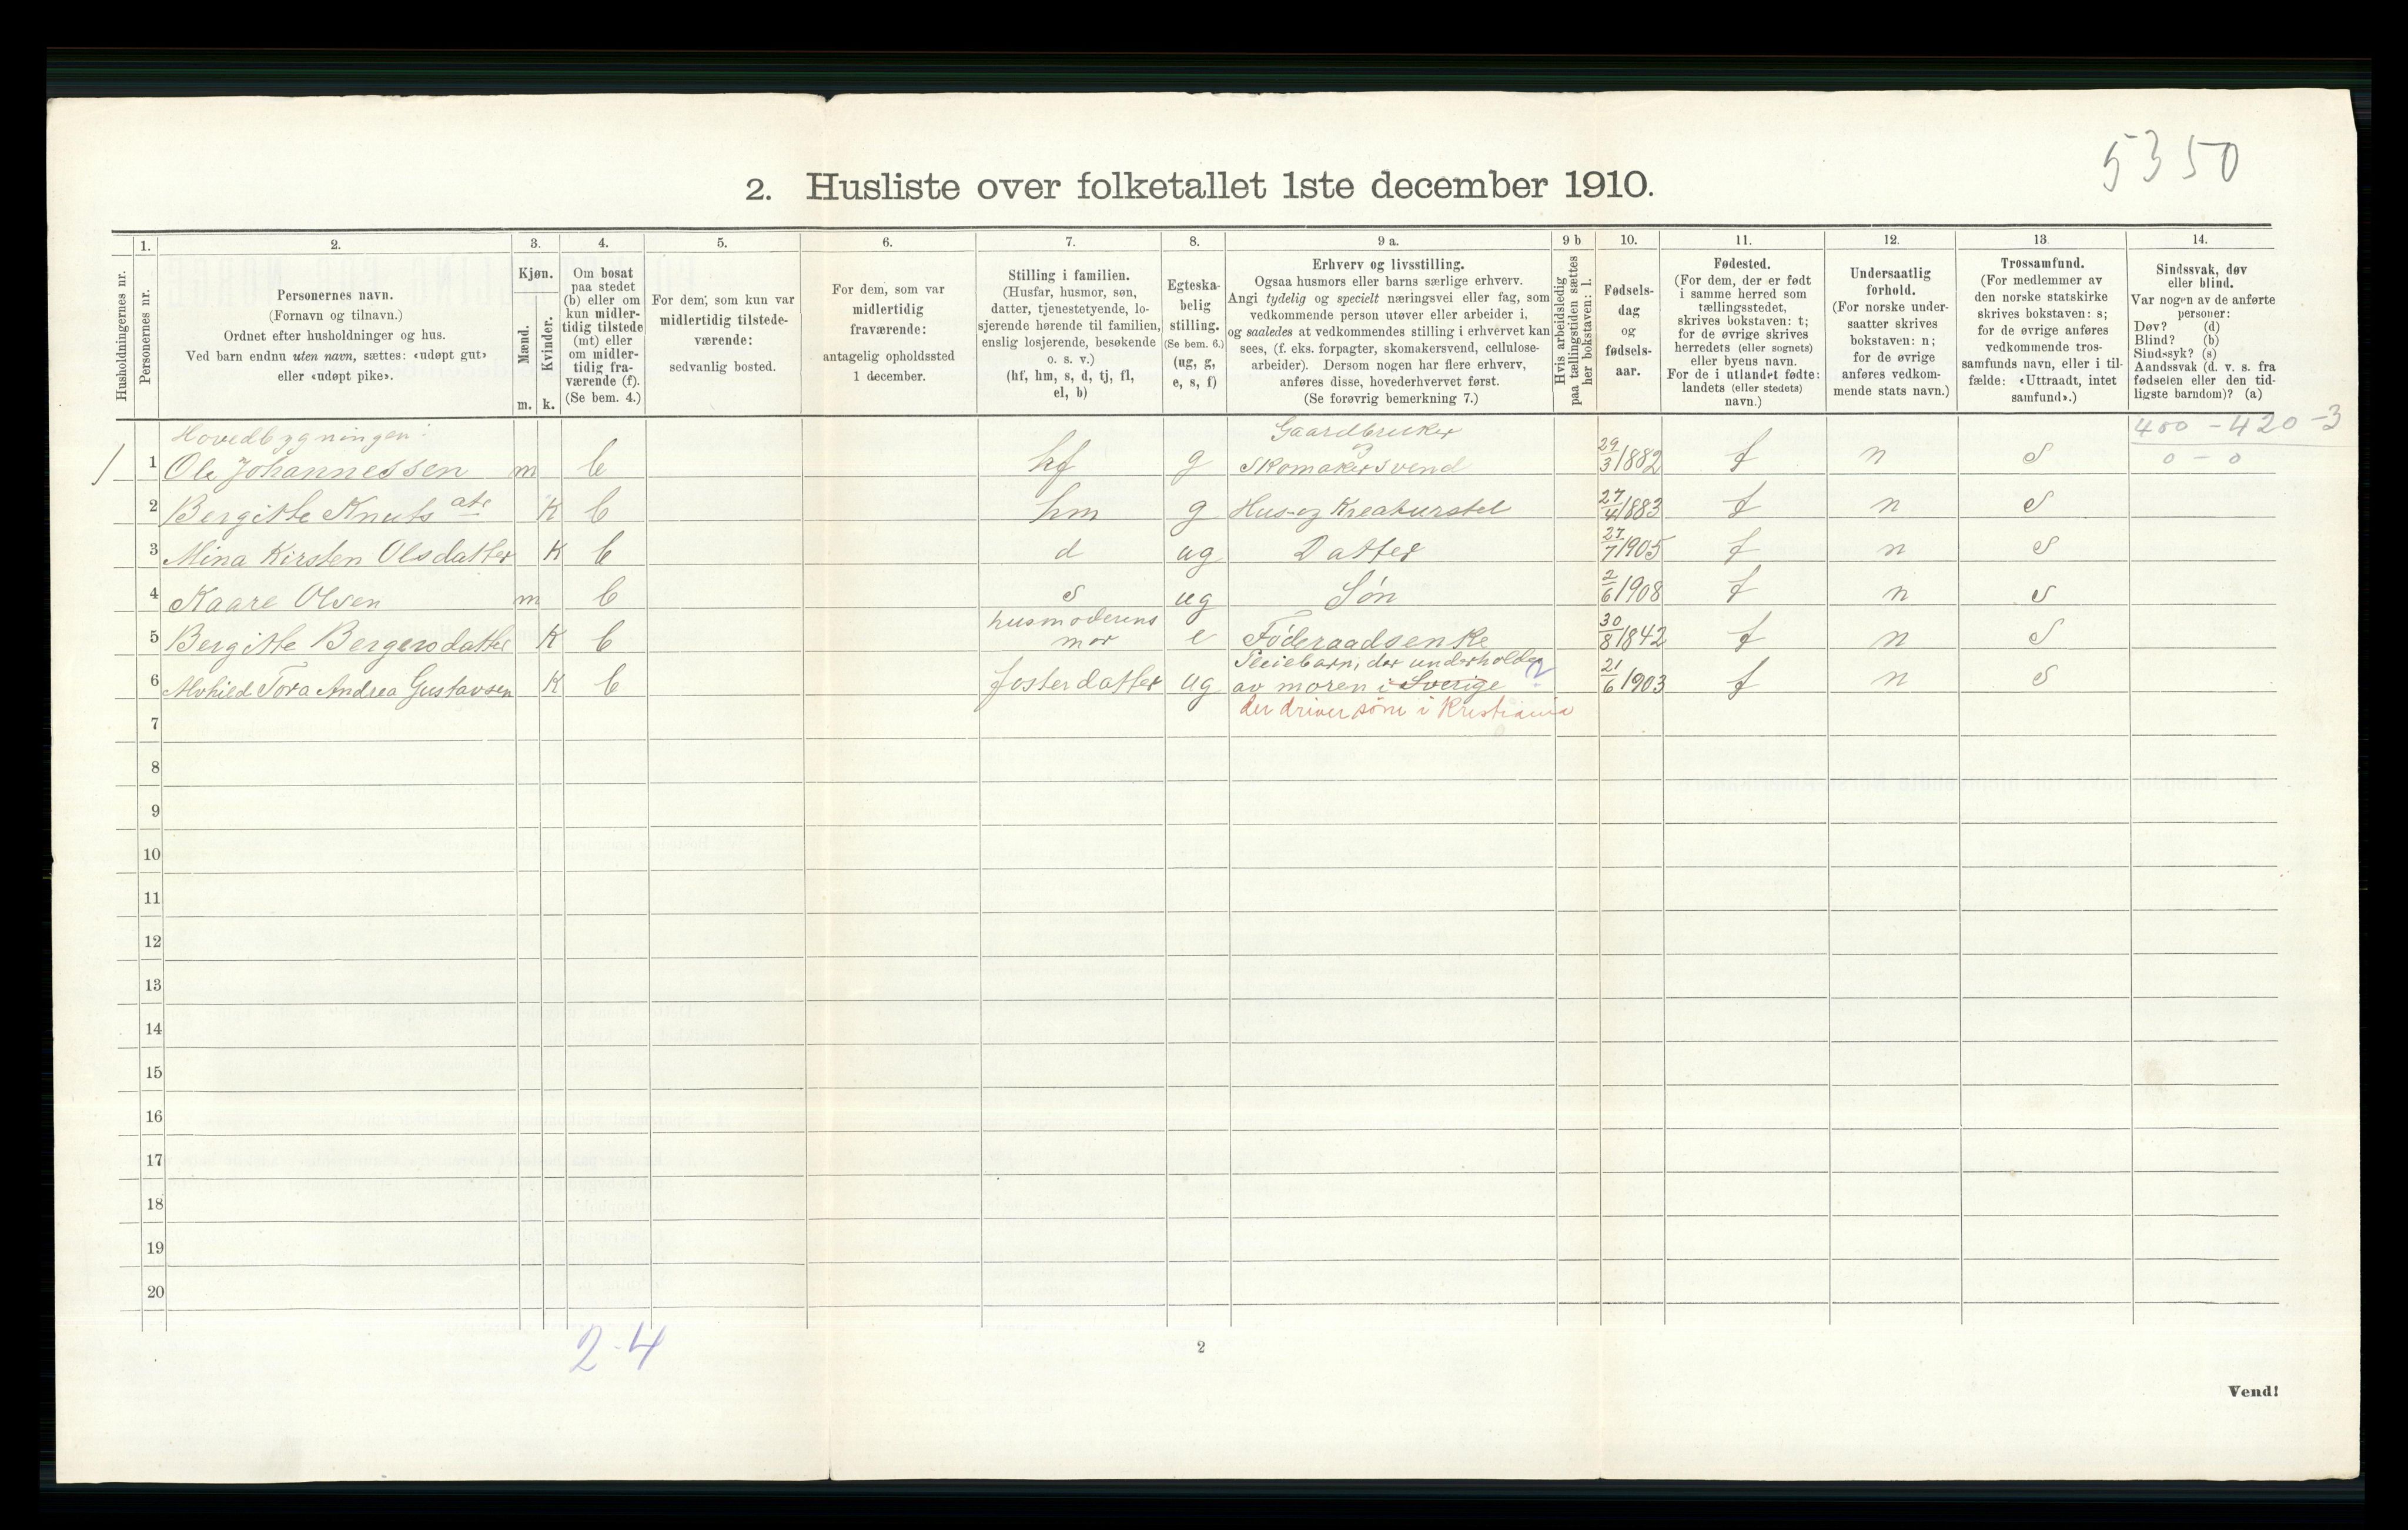 5350
2. Husliste over folketallet 1ste december 1910.
Husholdningernes nr.
1.
Personernes nr.
2.
Personernes navn.
(Fornavn og tilnavn.)
Ordnet efter husholdninger og hus.
Ved barn endnu uten navn, sættes: «udøpt gut»
eller «udøpt pike».
3.
Kjøn.
Mænd.
Kvinder.
m. k.
4.
Om bosat
paa stedet
(b) eller om
kun midler-
tidig tilstede
(mt) eller
om midler-
tidig fra-
værende (f).
(Se bem. 4.)
5.
For dem, som kun var
midlertidig tilstede-
værende:
sedvanlig bosted.
6.
For dem, som var
midlertidig
fraværende:
antagelig opholdssted
1 december.
7.
Stilling i familien.
(Husfar, husmor, søn,
datter, tjenestetyende, lo-
sjerende hørende til familien,
enslig losjerende, besøkende
o. s. v.)
(hf, hm, s, d, tj, fl,
el, b)
8.
Egteska-
belig
stilling.
(Se bem. 6.)
(ug, g,
e, s, f)
9 a.
Erhverv og livsstilling.
Ogsaa husmors eller barns særlige erhverv.
Angi tydelig og specielt næringsvei eller fag, som
vedkommende person utøver eller arbeider i,
og saaledes at vedkommendes stilling i erhvervet kan
sees, (f. eks. forpagter, skomakersvend, cellulose-
arbeider). Dersom nogen har flere erhverv,
anføres disse, hovederhvervet først.
(Se forøvrig bemerkning 7.)
9 b
Hvis arbeidsledig
paa tællingstiden sættes
her bokstaven: l.
10.
Fødsels-
dag
og
fødsels-
aar.
11.
Fødested.
(For dem, der er født
i samme herred som
tællingsstedet,
skrives bokstaven: t;
for de øvrige skrives
herredets (eller sognets)
eller byens navn.
For de i utlandet fødte:
landets (eller stedets)
navn.)
12.
Undersaatlig
forhold.
(For norske under-
saatter skrives
bokstaven: n;
for de øvrige
anføres vedkom-
mende stats navn.)
13.
Trossamfund.
(For medlemmer av
den norske statskirke
skrives bokstaven: s;
for de øvrige anføres
vedkommende tros-
samfunds navn, eller i til-
fælde: «Uttraadt, intet
samfund».)
14.
Sindssvak, døv
eller blind.
Var nogen av de anførte
personer:
Døv? (d)
Blind? (b)
Sindssyk? (s)
Aandssvak (d. v. s. fra
fødselen eller den tid-
ligste barndom)? (a)
Hovedbygningen: Gaardbruker 400 - 420 - 3
1 Ole Johannessen m b hf g og Skomakersvend 29/3 1882 t n s 0 - 0
2 Bergitte Knutsdtr K b hm g Hus- og Kreaturstel 27/4 1883 t n s
3 Mina Kirsten Olsdatter K b d ug Datter 27/7 1905 t n s
4 Kaare Olsen m b s ug Søn 2/6 1908 t n s
5 Bergitte Bergersdatter K b husmoderens mor e Føderaadsenke 30/8 1842 t n s
6 Alvhild Tora Andrea Gustavsen K b fosterdatter ug Pleiebarn, der underholdes av moren i Sverige 21/6 1903 t n s
der driver søm i Kristiania
7
8
9
10
11
12
13
14
15
16
17
18
19
20
2-4
2
Vend!